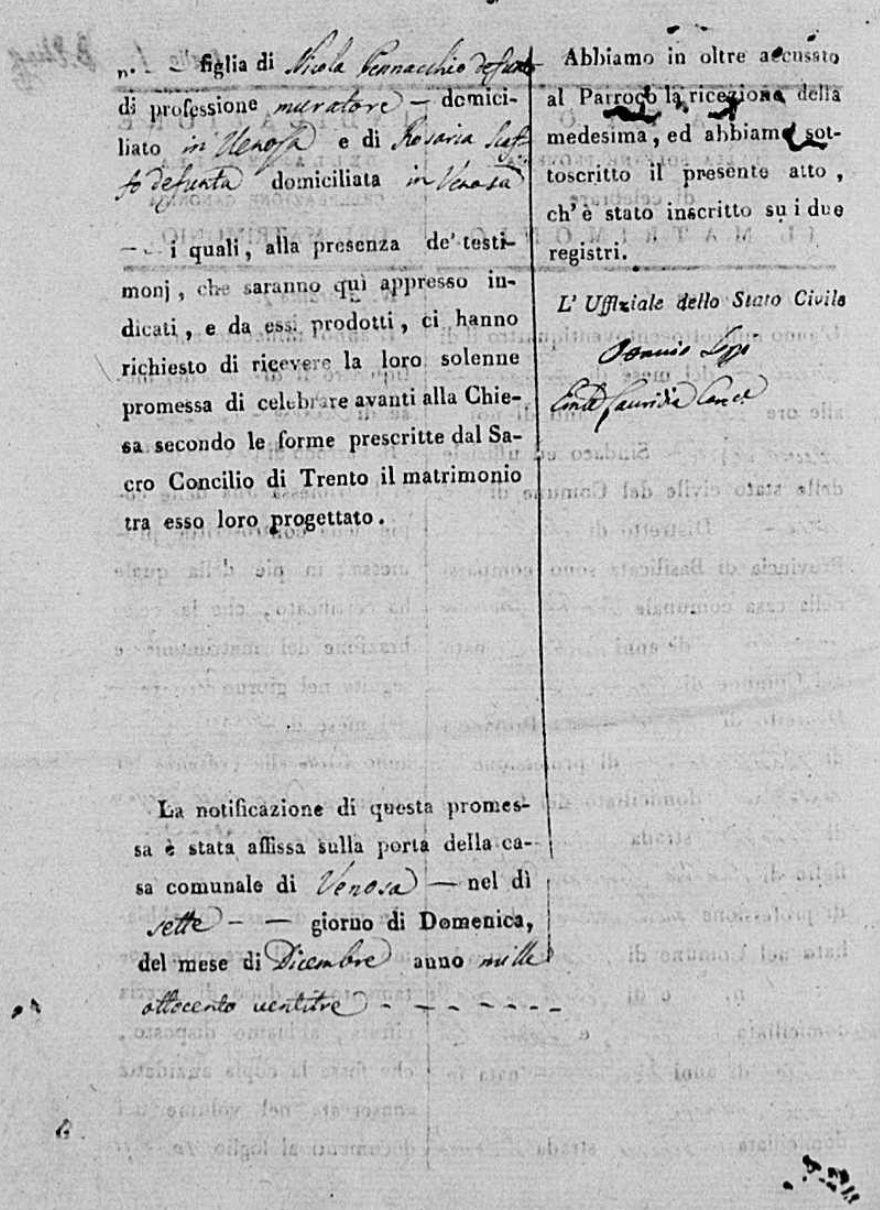 n. - - figlia di Nicola Pennacchio defunto
di professione muratore - domici-
liato in Venosa e di Rosaria
defunta domiciliata in Venosa
- - i quali, alla presenza de' testi-
monj, che saranno quì appresso in-
dicati, e da essi prodotti, ci hanno
richiesto di ricevere la loro solenne
promessa di celebrare avanti alla Chie-
sa secondo le forme prescritte dal Sa-
cro Concilio di Trento il matrimonio
tra esso loro progettato.
La notificazione di questa promes-
sa è stata affissa sulla porta della ca-
sa comunale di Venosa - nel dì
sette - - giorno di Domenica,
del mese di Dicembre anno mille
ottocento ventitre - - - - - - -
Abbiamo in oltre accusato
al Parroco la ricezione della
medesima, ed abbiamo sot-
toscritto il presente atto,
ch'è stato inscritto su i due
registri.
L' Uffiziale dello Stato Civile